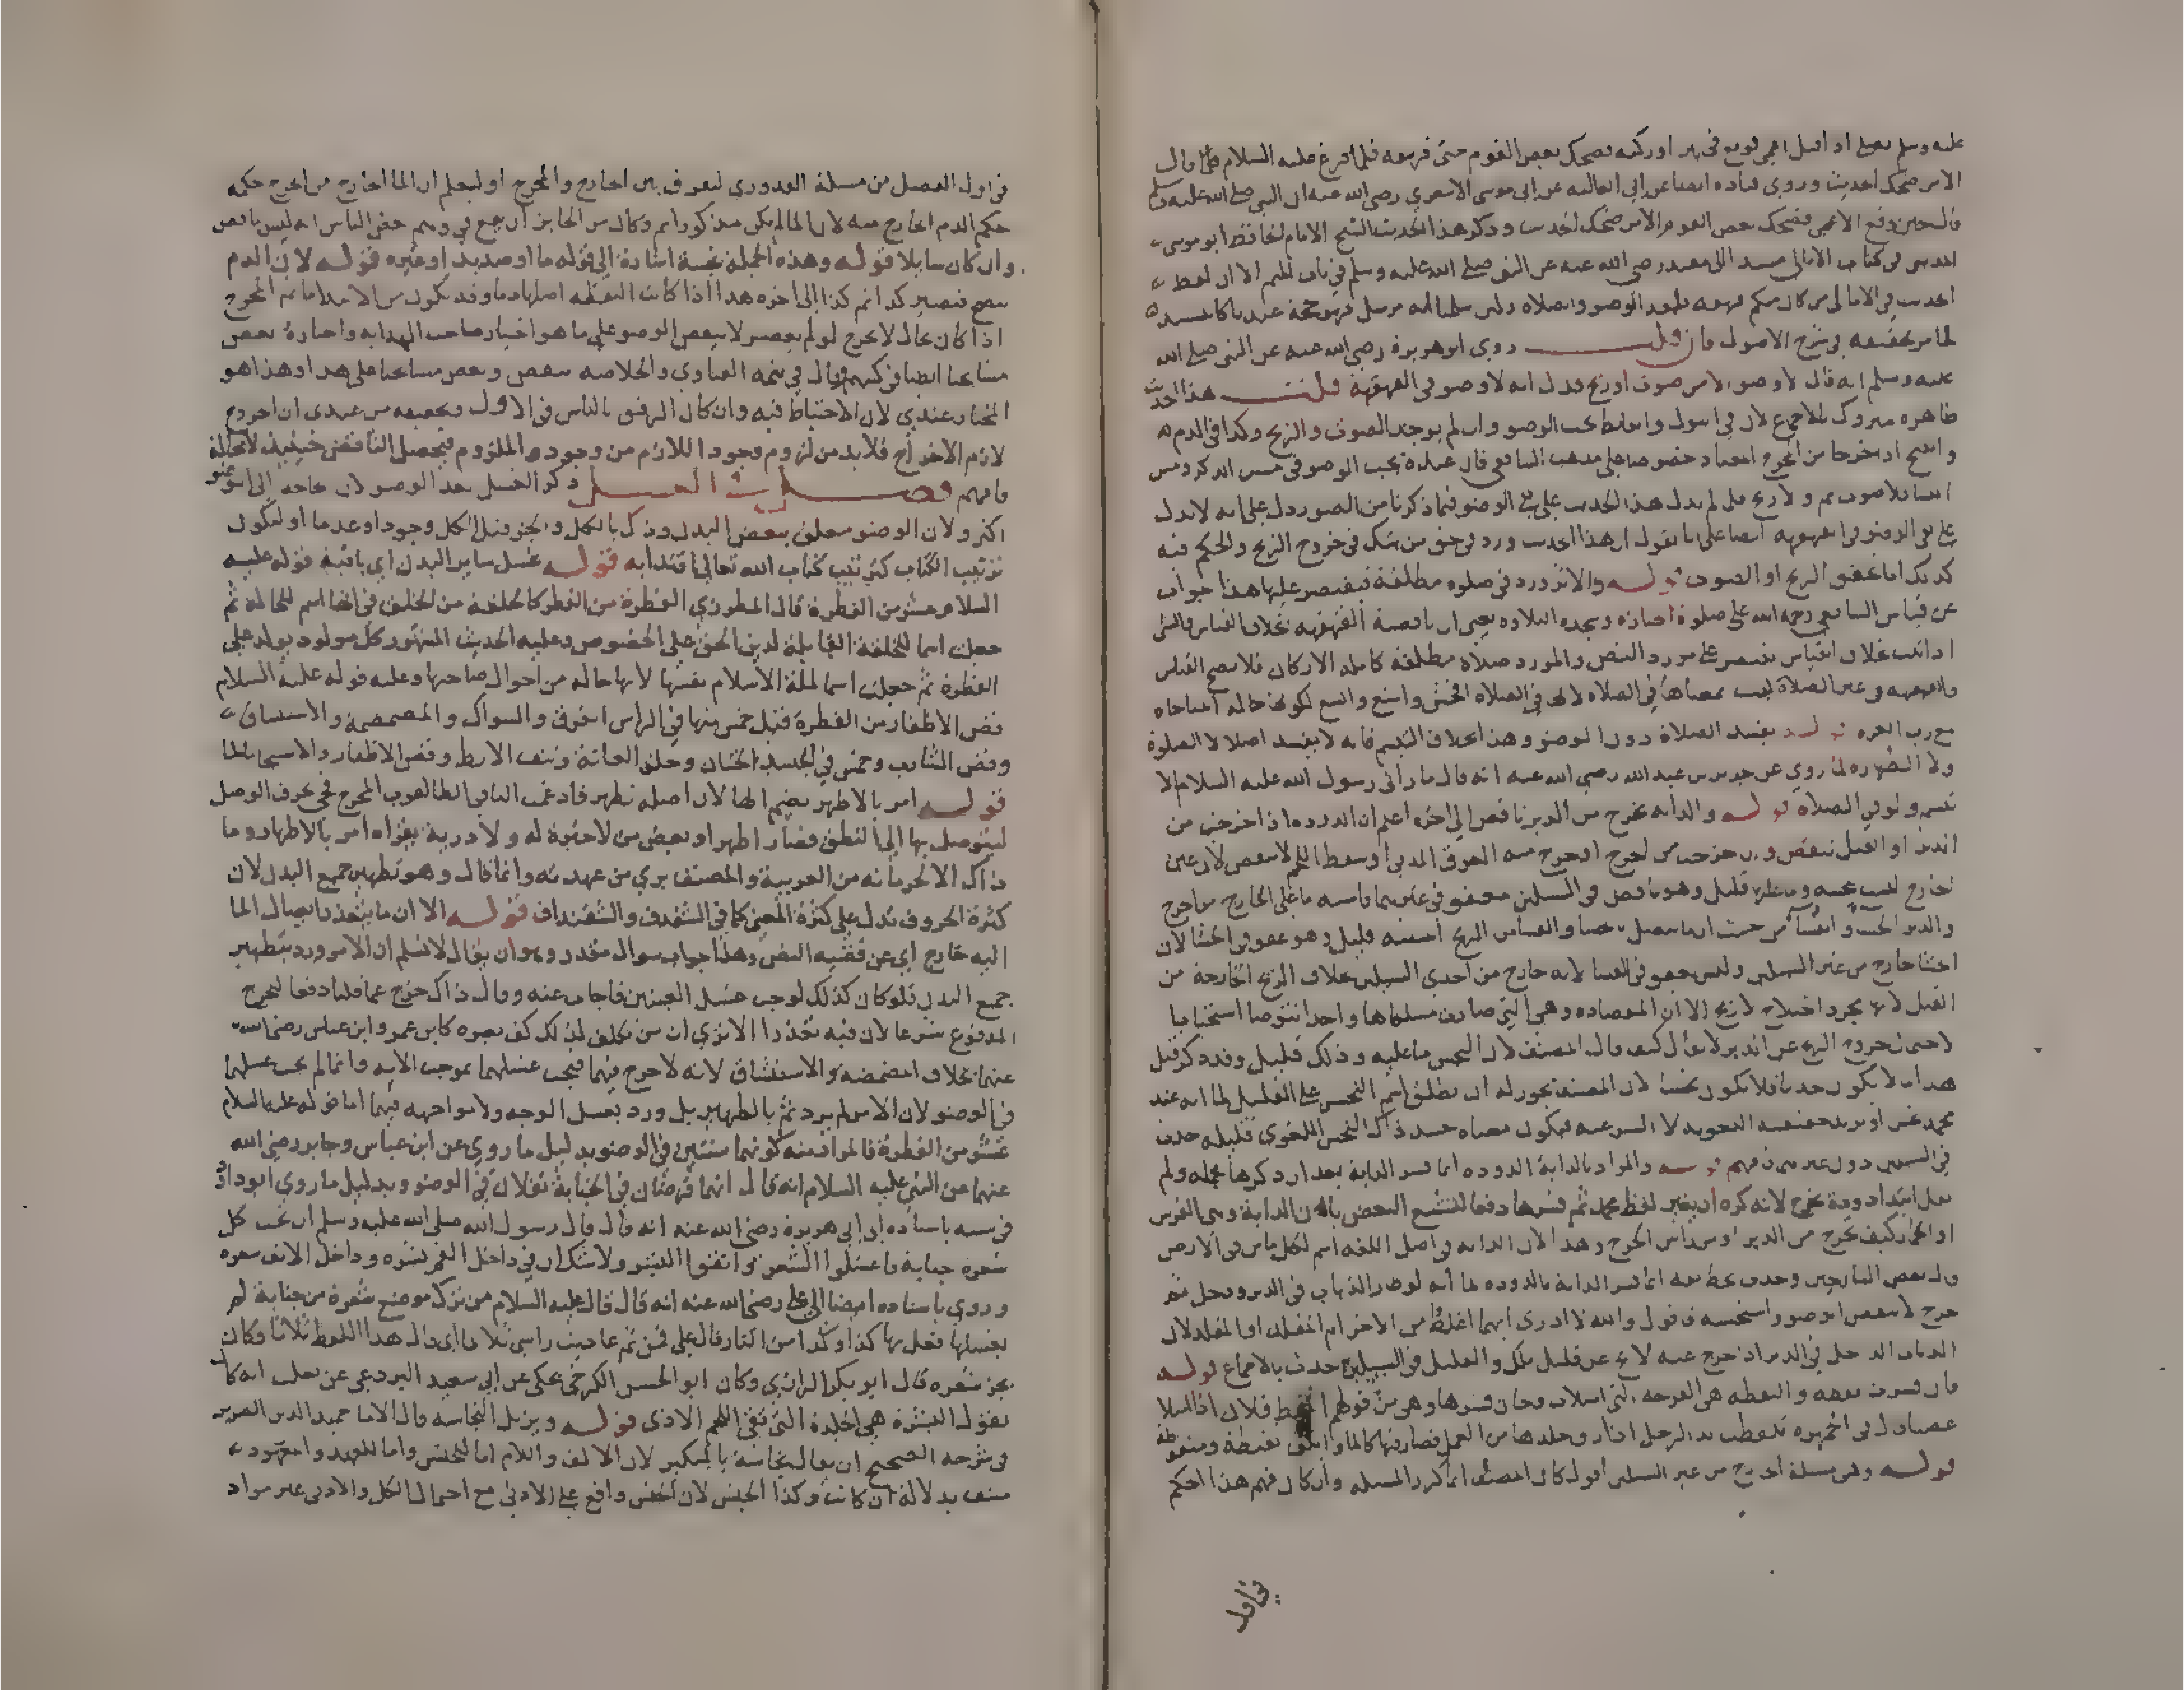 عليه وسلم يصلي اذ اقبل اعمى فوقع في بير او ركية فضحك بعض القوم حتى قهقهه فلما فرغ عليه السلام قال
الا من ضحك الحديث وروى قتاده ايضا عن ابي العاليه عن ابي موسى الاشعري رضي الله عنه ان النبي صلى الله عليه وسلم
قال حين وقع الاعمى فضحك بعض القوم الا من ضحك الحديث وذكر هذا الحديث الشيخ الامام الحافظ ابو موسى
في كتاب الامالي مسندا الى معبد رضي الله عنه عن النبي صلى الله عليه وسلم في باب الميم الا ان لفظ
الحديث في الامالي من كان منكم قهقهه فليعد الوضو والصلاه ولين سلمنا انه مرسل فهو حجة عندنا كالمسند
لما مر تحقيقه في شرح الاصول فان قلت روى ابو هريرة رضي الله عنه عن النبي صلى الله
عليه وسلم انه قال لا وضو الا من صوت او ريح فدل انه لا وضو في القهقهة قلت هذا الحديث
ظاهره متروك بالاجماع لان في البول والغايط يجب الوضو وان لم يوجد الصوت والريح وكذا في الدم
والقيح اذا خرجا من المخرج المعتاد خصوصا على مذهب الشافعي فان عنده يجب الوضو في مس الذكر ومس
النسا بلا صوت ثم ولا ريح فلما لم يدل هذا الحديث على نفي الوضو فيما ذكرنا من الصور دل على انه لا يدل
على نفي الوضو في القهقهه ايضا على انا نقول ان هذا الحديث ورد في حق من شك في خروج الريح والحكم فيه
كذلك اما تحقق الريح او الصوت قوله والاثر ورد في صلوه مطلقة فيقتصر عليها هذا جواب
عن قياس الشافعي رحمه الله على صلوة الجنازه وسجده التلاوه يعني ان ناقضية القهقهه بخلاف القياس والشي
اذا ثبت بخلاف القياس يقتصر على مورد النص والمورد صلاة مطلقة كاملة الاركان فلا يصح القياس
والقهقهه في غير الصلاة ليست بمعناها في الصلاه لانها في الصلاه افحش واشنع لكونها حالة المناجاه
مع رب العزه قوله يفسد الصلاة دون الوضو وهذا بخلاف التبسم فانه لا يفسد اصلا لا الصلوة
ولا الطهاره لما روي عن جرير بن عبد الله رضي الله عنه انه قال ما راني رسول الله عليه السلام الا
تبسم ولو في الصلاه قوله والدابه تخرج من الدبر ناقض الى اخره اعلم ان الدوده اذا خرجت من
الدبر او القبل تنقض وان خرجت من الجرح او خرج منه العرق المدني او سقط اللحم لا ينقض لان عين
الخارج ليست بنجسه وما عليها قليل وهو ناقض في السبيلين معفو في غيرهما
القبل لانها مجرد اختلاج لا ريح الا ان المفضاه وهي التي صار مسلكاها واحدا تتوضا استحبابا
لاحتمال خروج الريح عن الدبر لا يقال كيف قال المصنف لان النجس ما عليه وذلك قليل وقد ذكر قبل
هذا ان ما لا يكون حدثا فلا يكون نجسا لان المصنف يجوز له ان يطلق اسم النجس على القليل لما انه عند
محمد نجس
في السبيلين دون غيرهما فافهم قوله والمراد بالدابة الدوده انما فسر الدابة بعد ان ذكرها مجمله ولم
يقل ابتدا دودة تخرج لانه كره ان يغير لفظ محمد ثم فسرها دفعا لتشنيع البعض بان الدابة وهي الفرس
او الحمار كيف تخرج من الدبر او من راس الجرح وهذا لان الدابه في اصل اللغه اسم لكل ماش في الارض
وقال بعض الشارحين وحدت بخط ثقه انما فسر الدابة بالدوده لما انه لو طار الذباب في الدبر ودخل ثم
خرج لا ينقض الوضو واستحسنه فاقول والله لا ادري ايهما اغلط من الاخر ام المقلد او المقلد لان
الذباب الداخل في الدبر اذا خرج عنه لا يخلو عن قليل بلل والقليل في السبيلين حدث بالاجماع قوله
فان قشرت نفطه والنفطه هي القرحه التي امتلات وحان قشرها وهي من قولهم انتفط فلان اذا امتلا
غضبا وقال في الجمهرة تنفطت يد الرجل اذا رق جلدها من العمل فصار فيها كالماء والكف نفيطة ومنفوطة
قوله وهي مسلة الخارج من غير السبيلين اقول كان المصنف انما كرر المسله وان كان فهم هذا الحكم
في اول
في اول الفصل من مسلة القدوري ليعرف بين الخارج والمخرج او ليعلم ان الما الخارج من الجرح حكمه
حكم الدم الخارج منه لان الما لم يكن مذكورا ثم وكان من الجايز ان يقع في وهم بعض الناس انه ليس بناقض
وان كان سايلا قوله وهذه الجملة نجسة اشارة الى قوله ما او صديد او غيره قوله لان الدم
ينضج فيصير كذا ثم كذا الى اخره هذا اذا كانت النفطه اصلها دما وقد تكون من الابتدا ما ثم المخرج
اذا كان بحال لا يخرج لو لم يعصر لا ينقض الوضو على ما هو اختيار صاحب الهدايه واختاره بعض
مشايخنا ايضا في كتبهم وقال في تتمه الفتاوي والخلاصه ينقض وبعض مشايخنا على هذا وهذا هو
المختار عندي لان الاحتياط فيه وان كان الرفق بالناس في الاول وتحقيقه من عندي ان الخروج
لازم الاخراج فلا بد من لزوم وجود اللازم من وجود الملزوم فيحصل الناقض حينيذ لا محالة
فافهم فصل في الغسل ذكر الغسل بعد الوضو لان حاجته الى الوضو
اكثر ولان الوضو متعلق ببعض البدن وذاك بالكل والجزو قبل الكل وجودا وعدما او ليكون
ترتيب الكتاب كترتيب كتاب الله تعالى اقتدا به قوله غسل ساير البدن اي باقيه قوله عليه
السلام عشر من الفطرة قال المطرزي الفطرة من الفطر كالخلقة من الخلق في انها اسم للحالة ثم
جعلت اسما للخلقة القابلة لدين الحق على الخصوص وعليه الحديث المشهور كل مولود يولد على
الفطرة ثم جعلت اسما لملة الاسلام نفسها لانها حاله من احوال صاحبها وعليه قوله عليه السلام
قص الاظفار من الفطرة قيل خمس منها في الراس الفرق والسواك والمضمضة والاستنشاق
وقص الشارب وخمس في الجسد الختان وحلق العانة ونتف الابط وقص الاظفار والاستنجا بالما
قوله امر بالاطهر بضم الها لان اصله تطهر فادغمت التا في الطا لقرب المخرج فجي بحرف الوصل
ليتوصل بها الى النطق فصار اطهر او بعض من لا خبرة له ولا درية يقراه امر بالاطهار وما
ذاك الا لحرمانه من العربية والمصنف بري من عهدته وانما قال وهو تطهير جميع البدن لان
كثرة الحروف تدل على كثرة المعنى كما في الشقدف والشقنداف قوله الا ان ما يتعذر ايصال الما
اليه خارج اي عن قضيه النص وهذا جواب سوال مقدر وهو ان يقال لا نسلم ان الامر ورد بتطهير
جميع البدن فلو كان كذلك لوجب غسل العينين فاجاب عنه وقال ذاك خرج عما قلنا دفعا للحرج
المدفوع شرعا لان فيه تعذرا الا ترى ان من تكلف لذلك كف بصره كابن عمر وابن عباس رضي الله
عنهما بخلاف المضمضه والاستنشاق لانه لا حرج فيهما فيجب غسلهما بموجب الايه وانما لم يجب غسلهما
في الوضو لان الامر لم يرد ثم بالتطهير بل ورد بغسل الوجه ولا مواجهه فيهما اما قوله عليه السلام
عشر من الفطرة فالمراد منه كونهما سنتين في الوضو بدليل ما روي عن ابن عباس وجابر رضي الله
عنهما عن النبي عليه السلام انه قال انهما فرضان في الجنابة نفلان في الوضو وبدليل ما روى ابو داود
في سننه باسناده الى ابي هريرة رضي الله عنه انه قال قال رسول الله صلى الله عليه وسلم ان تحت كل
شعره جنابة فاغسلوا الشعر وانقوا البشر ولا شك ان في داخل الفم بشره وداخل الانف شعره
وروى باسناده ايضا الى علي رضي الله عنه انه قال قال عليه السلام من ترك موضع شعرة من جنابة لم
يغسلها فعل بها كذا وكذا من النار قال علي فمن ثم عاديت راسي ثلاثا اي قال هذا اللفظ ثلاثا وكان
يجز شعره قال ابو بكر الرازي وكان ابو الحسن الكرخي يحكي عن ابي سعيد البردعي عن ثعلب انه كان
يقول البشرة هي الجلدة التي تقي اللحم الاذى قوله ويزيل النجاسه قال الامام حميد الدين الضرير
في شرحه الصحيح ان يقال نجاسة بالتنكير لان الالف واللام اما للجنس واما للعهد والمعهود
منتف بدلالة ان كانت وكذا الجنس لان الجنس واقع على الادنى مع احتمال الكل والادنى غير مراد